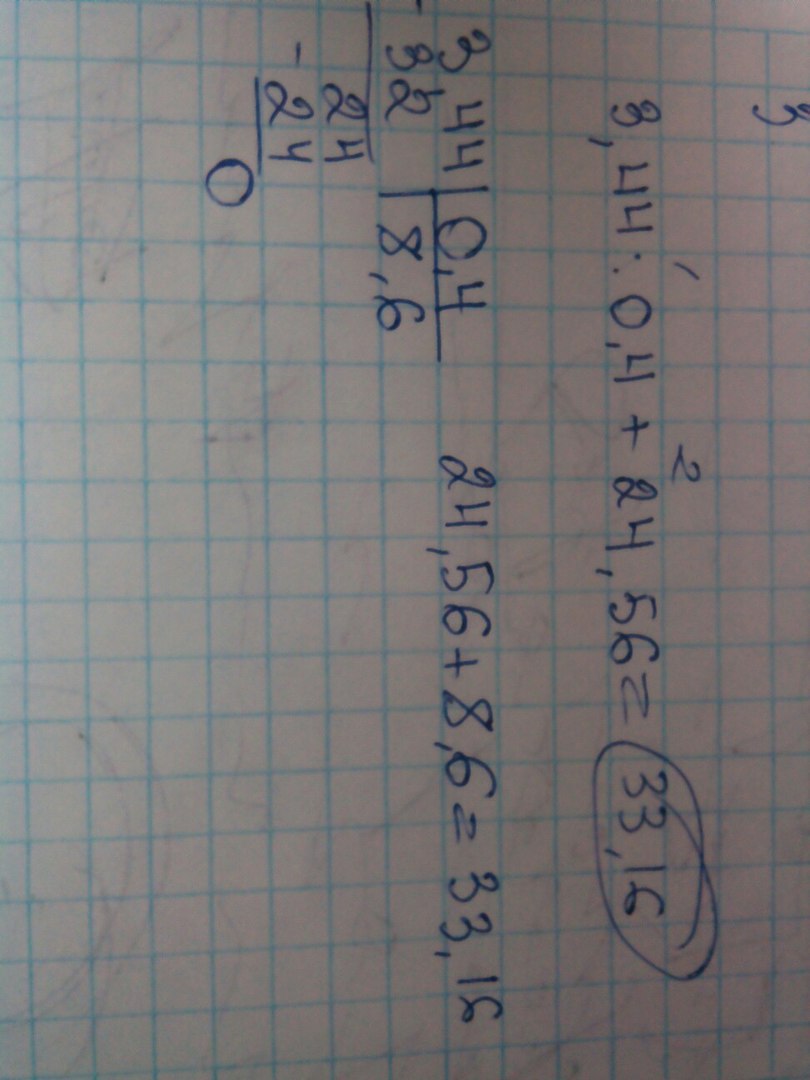 3
1 2
3,44 : 0,4 + 24,56 = 33,16
3,44 | 0,4
- 32 | 8,6
24
- 24
0
24,56 + 8,6 = 33,16